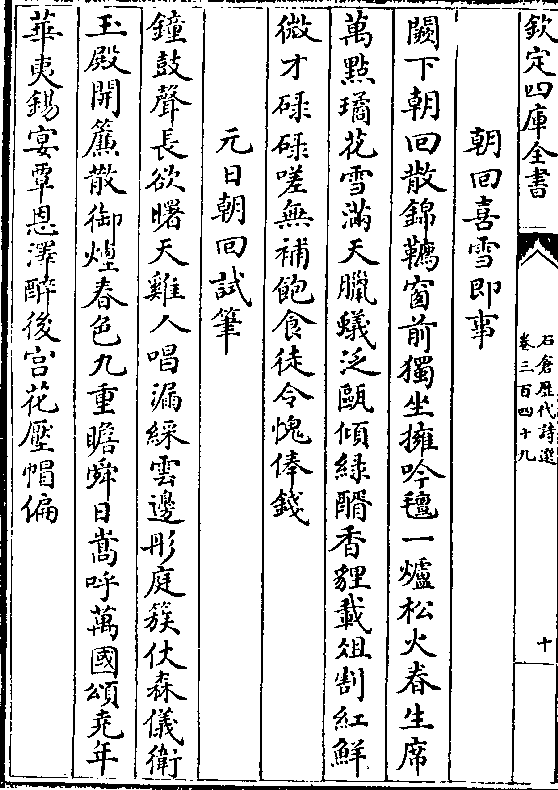 欽定四庫全書
石倉歷代詩選
卷三百四十九
十
朝回喜雪即事
闕下朝回散錦韉窗前獨坐擁吟氊一爐松火春生席
萬點璚花雪滿天臘蟻泛甌傾緑醑香貍載俎割紅鮮
微才碌碌嗟無補飽食徒令愧俸錢
元日朝回試筆
鐘鼓聲長欲曙天雞人唱漏綵雲邊彤庭簇仗森儀衛
玉殿開簾散御煙春色九重瞻舜日嵩呼萬國頌堯年
華夷錫宴覃恩澤醉後宫花壓帽偏